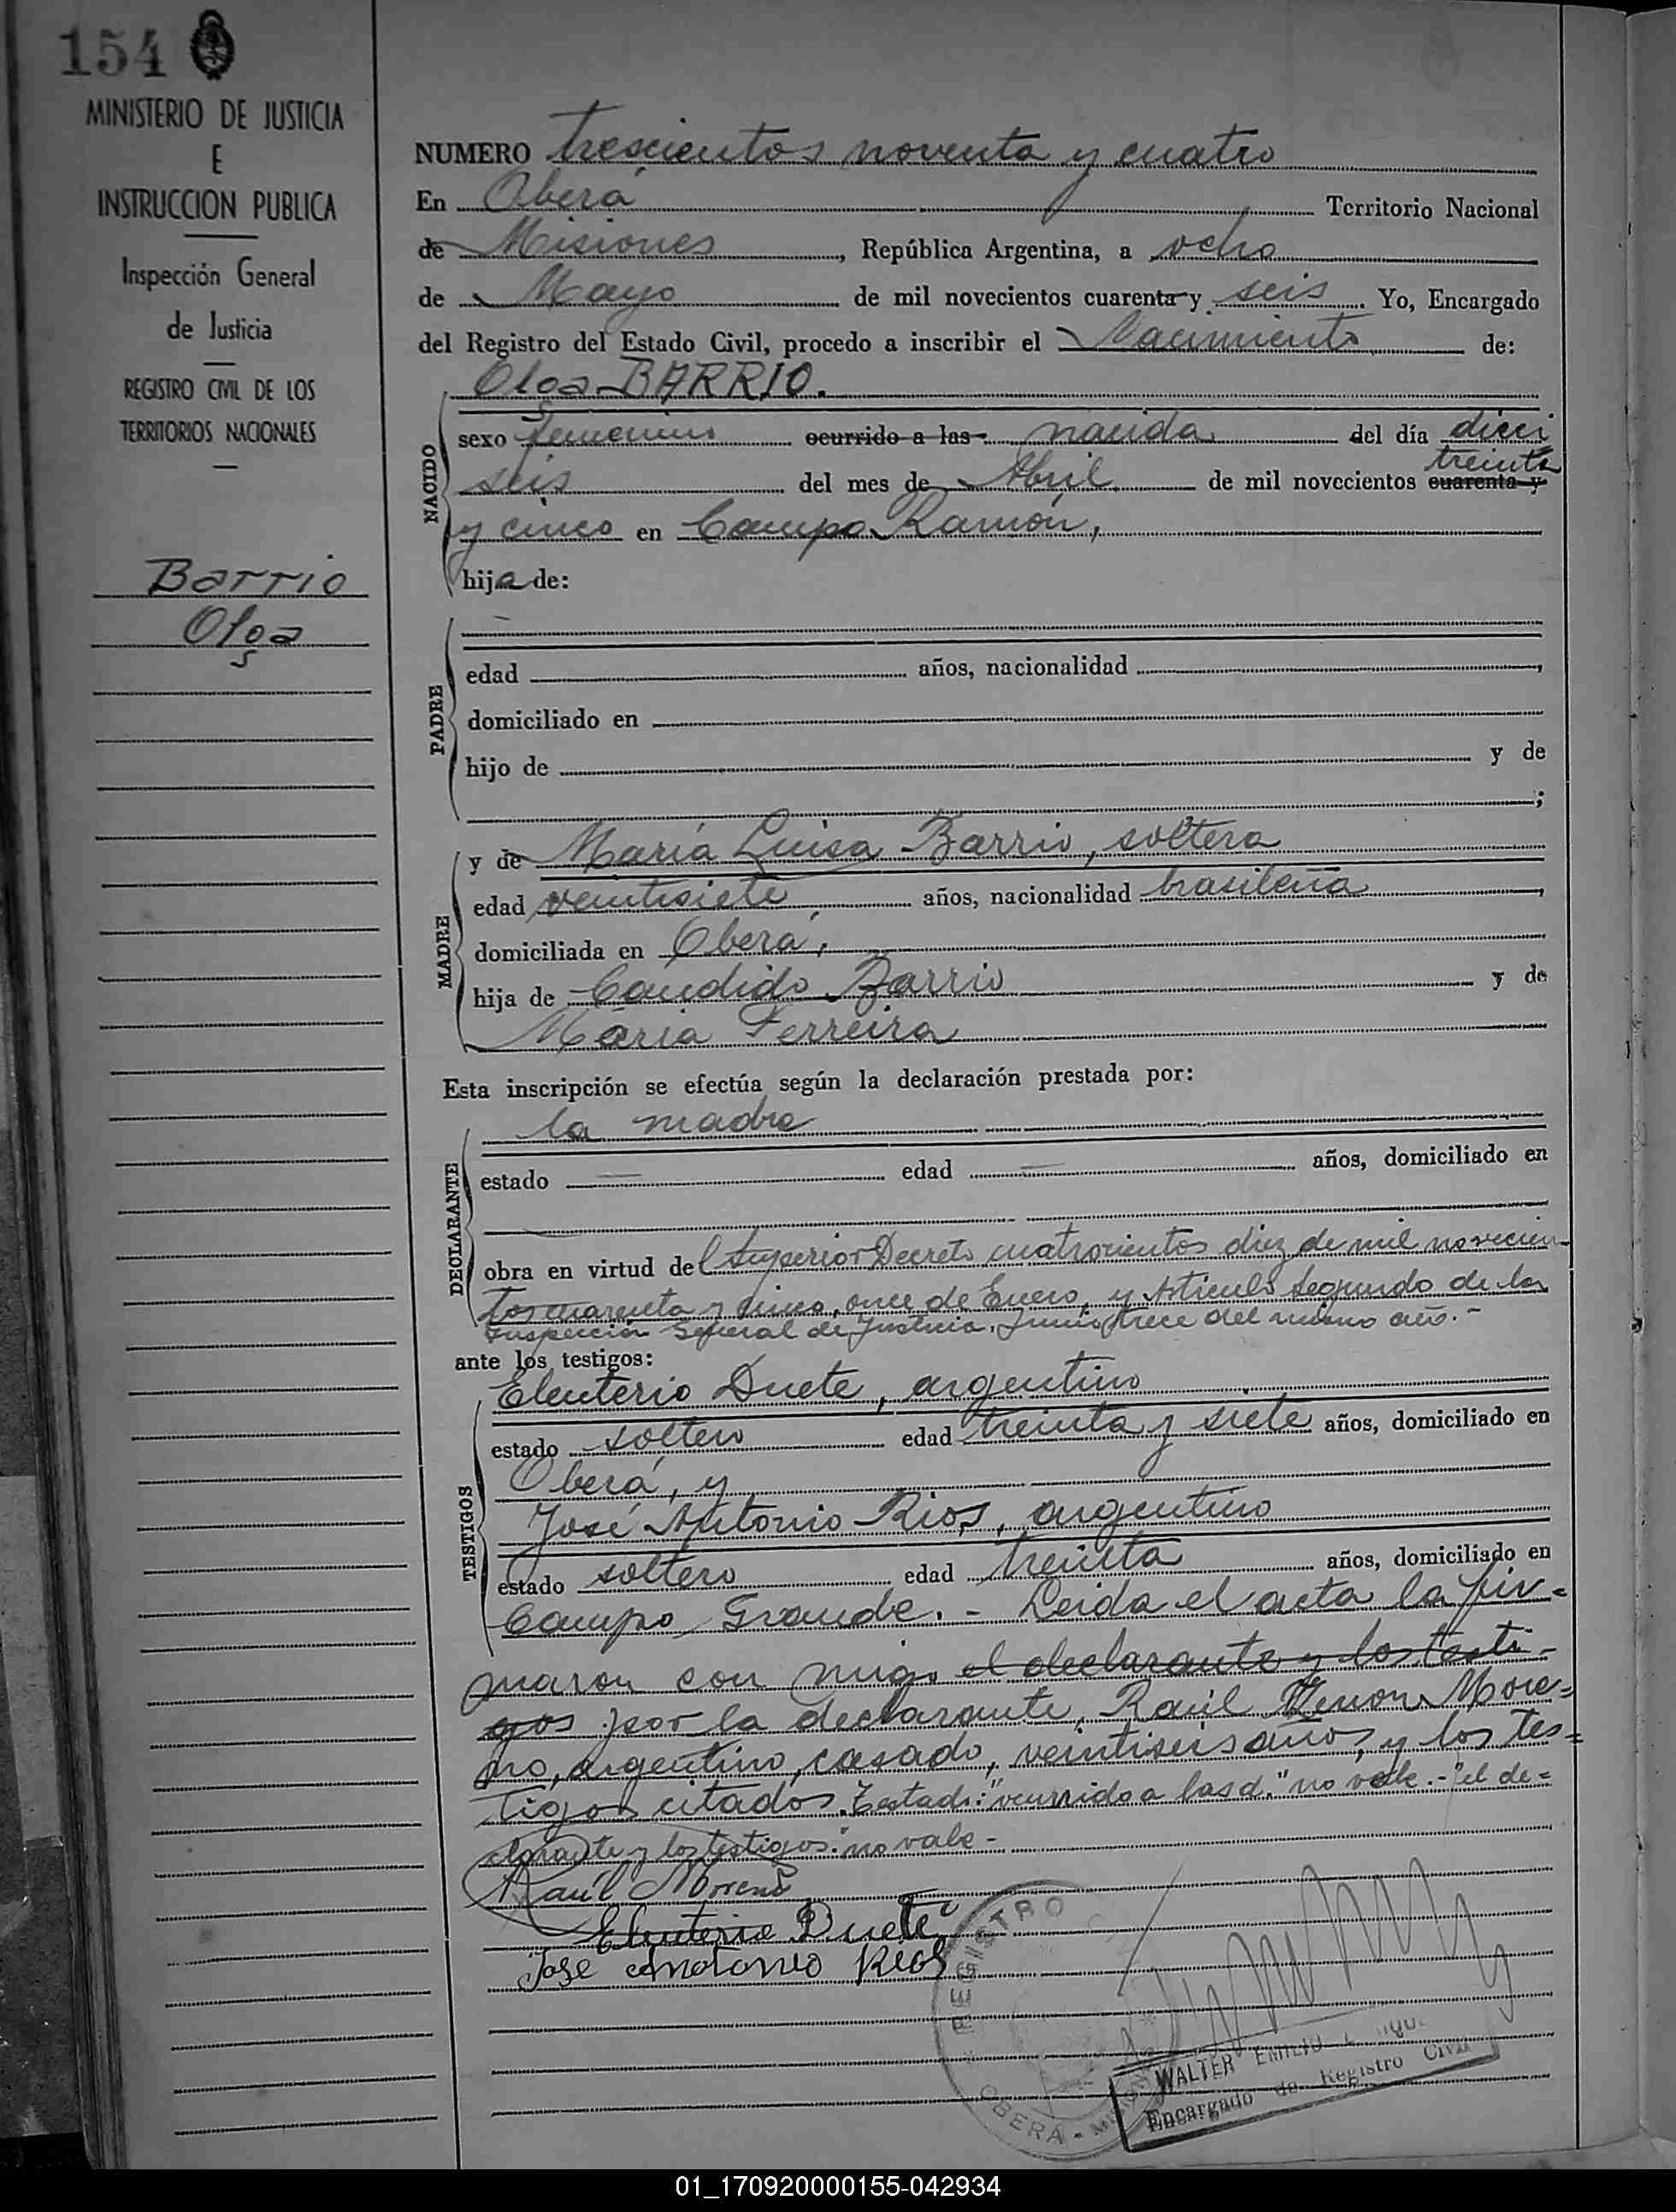 154
MINISTERIO DE JUSTICIA
E
INSTRUCCION PUBLICA
Inspección General
de Justicia
REGISTRO CIVIL DE LOS
TERRITORIOS NACIONALES
Barrio
Olga
NUMERO trescientos noventa y cuatro
En Oberá Territorio Nacional
de Misiones, República Argentina, a ocho
de Mayo de mil novecientos cuarenta y seis. Yo, Encargado
del Registro del Estado Civil, procedo a inscribir el Nacimiento de:
Olga BARRIO.
NACIDO
sexo femenino ocurrido a las nacida del día dieci
treinta
seis del mes de Abril de mil novecientos cuarenta y
y cinco en Campo Ramón,
hija de:
PADRE
edad años, nacionalidad ,
domiciliado en
hijo de y de
;
MADRE
y de María Luisa Barrio, soltera
edad veintisiete años, nacionalidad brasileña,
domiciliada en Oberá,
hija de Candido Barrio y de
María Ferreira
Esta inscripción se efectúa según la declaración prestada por:
la madre
DECLARANTE
estado — edad — años, domiciliado en
obra en virtud del Superior Decreto cuatrocientos diez de mil novecien
tos cuarenta y cinco, once de Enero, y Artículo Segundo de la
Inspección General de Justicia, Junio trece del mismo año.-
ante los testigos:
TESTIGOS
Eleuterio Duete, argentino
estado soltero edad treinta y siete años, domiciliado en
Oberá, y
José Antonio Rios, argentino
estado soltero edad treinta años, domiciliado en
Campo Grande. - Leida el acta la fir-
maron con migo el declarante y los testi-
gos por la declarante, Raúl More=
no, argentino, casado, veintiseis años, y los tes=
tigos citados. Testado: "ocurrido a las d." no vale.-"el de=
clarante y los testigos" no vale-
Raúl Moreno
Eleuterio Duete
Jose Antonio Rios
REGISTRO
OBERÁ -
WALTER EMILIO
Encargado de Registro Civil
01_170920000155-042934